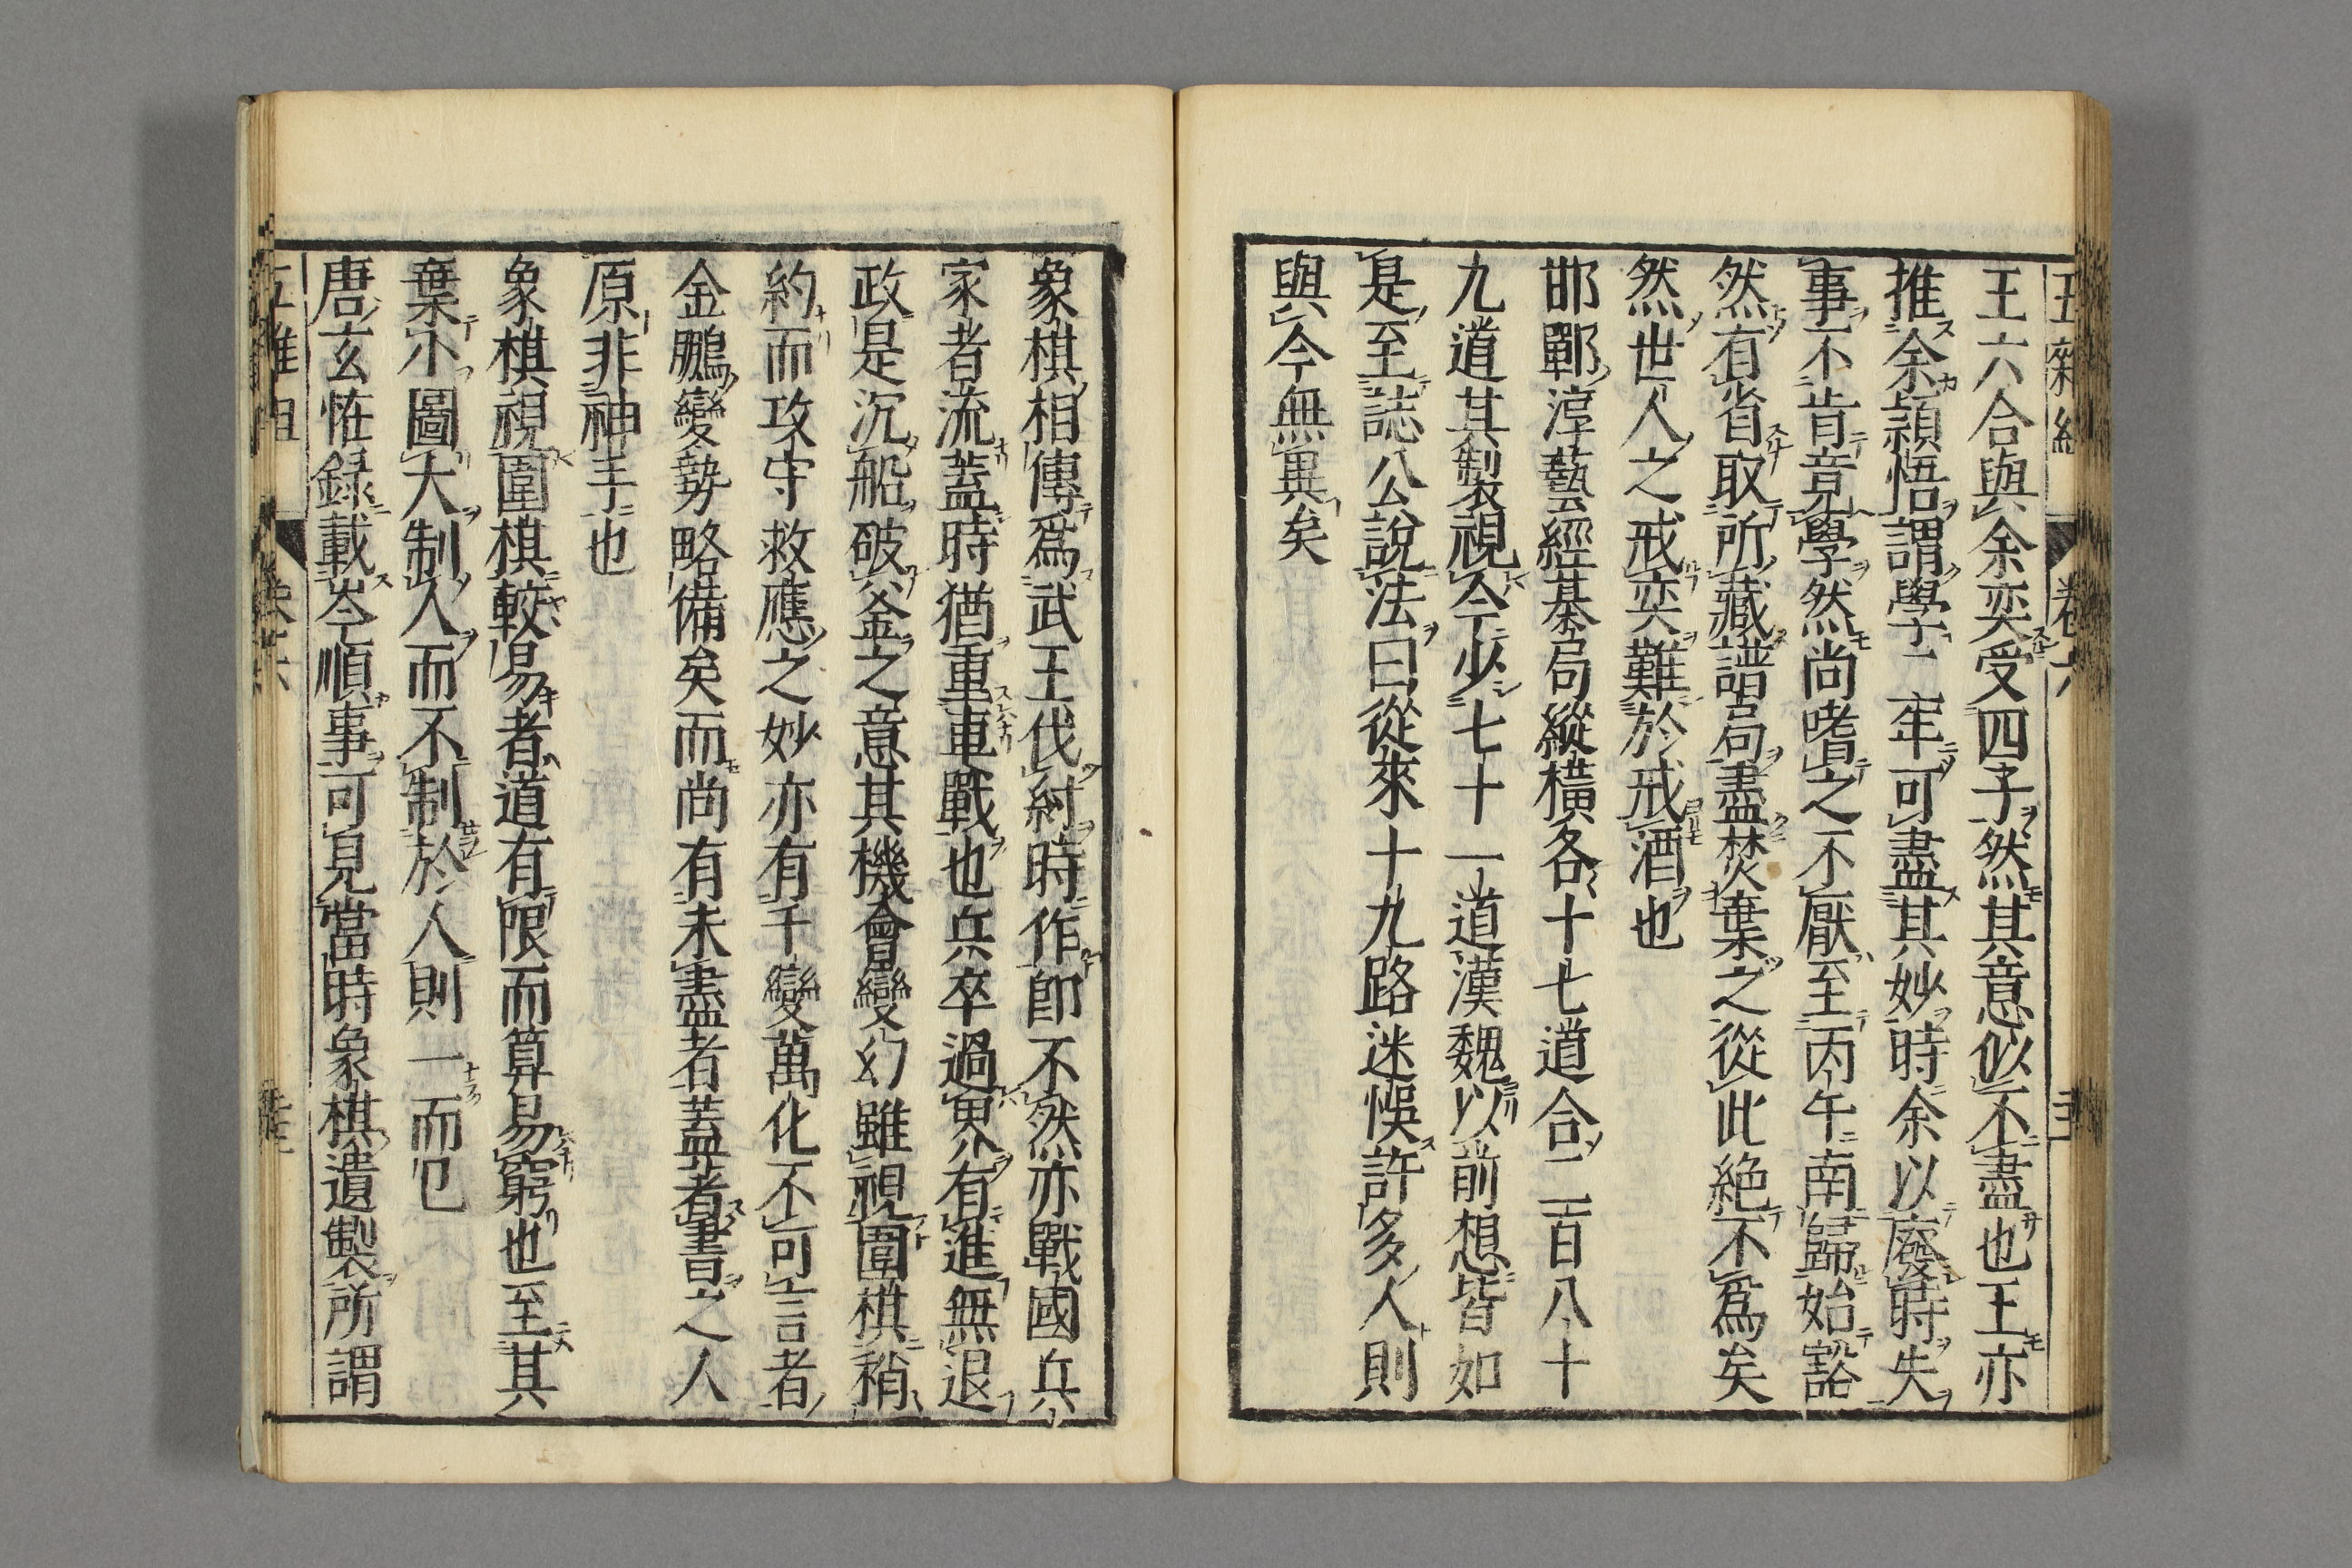 王六合與余奕受四子然其意似不盡也王亦
推余穎悟謂學二年可盡其妙時余以廢時失
事不肯竟學然尚嗜之不厭至丙午南歸始豁
然有省取所藏譜局盡焚棄之從此絶不爲矣
然世人之戒奕難於戒酒也
邯鄲淳藝經棊局縱横各十七道合二百八十
九道其製視今少七十一道漢魏以前想皆如
是至誌公說法曰從來十九路迷悞許多人則
與今無異矣
象棋相傳爲武王伐紂時作即不然亦戰國兵
家者流蓋時猶重車戰也兵卒過界有進無退
政是沉船破釜之意其機會變幻雖視圍棋稍
約而攻守救應之妙亦有千變萬化不可言者
金鵬變勢略備矣而尚有未盡者蓋著書之人
原非神手也
象棋視圍棋較易者道有限而算易窮也至其
棄小圖大制人而不制於人則一而已
唐玄怪録載岑順事可見當時象棋遺製所謂